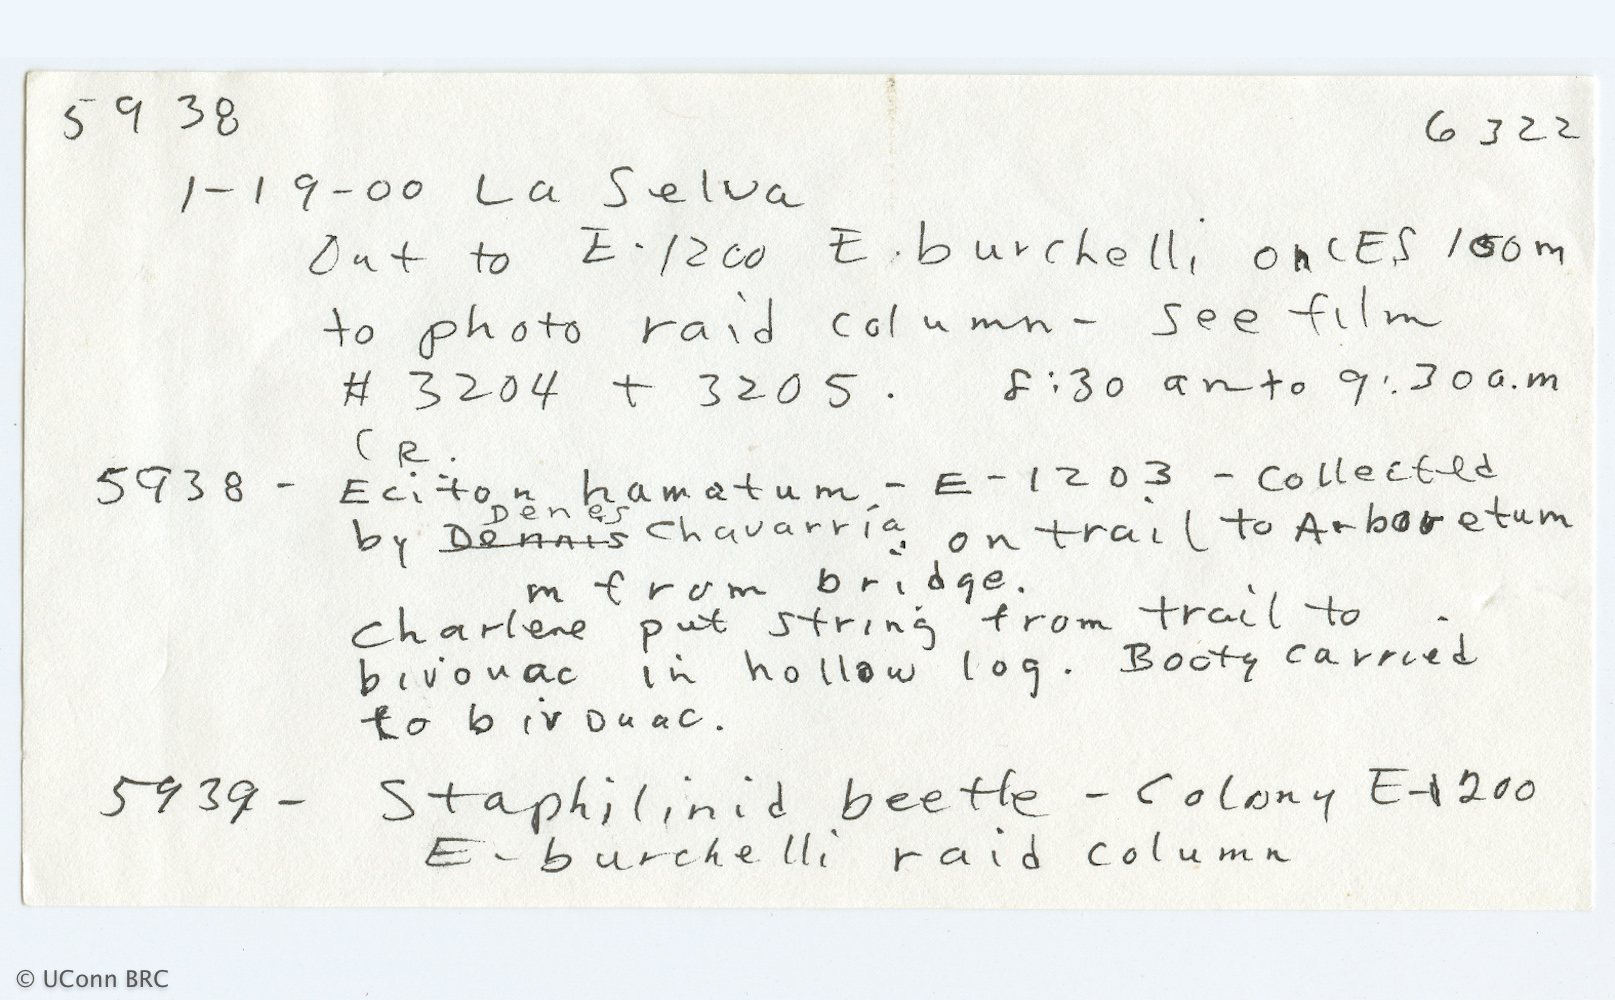 5938 6322
1-19-00 La Selva
Out to E-1200 E. burchelli on CES 100m
to photo raid column - see film
# 3204 + 3205. 8:30 am to 9:30 a.m
CR.
5938 - Eciton hamatum - E-1203 - Collected
Denes
by Dennis Chavarría on trail to Arboretum
m from bridge.
Charlene put string from trail to
bivouac in hollow log. Booty carried
to bivouac.
5939 - Staphilinid beetle - Colony E-1200
E-burchelli raid column
© UConn BRC